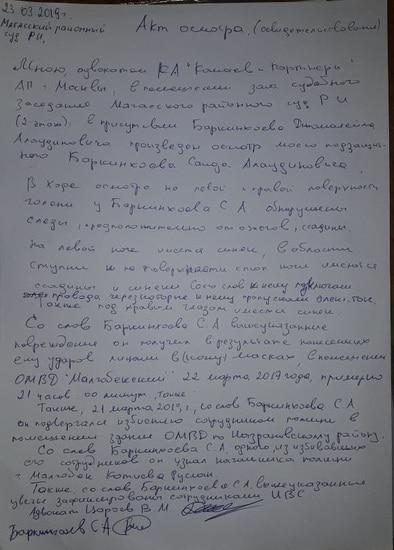 23.03.2019г.
Магасский районный
суд РИ,
Акт осмотра, (освидетельствования)
Мною, адвокатом КА "Камаев и Партнеры"
АП г. Москвы, в помещении зала судебного
заседания Магасского районного суд РИ
(2 этаж), в присутствии Баркинхоева
Алаудиновича произведен осмотр моего подзащит-
ного Баркинхоева Саида Алаудиновича.
В ходе осмотра на левой и правой поверхности
голени у Баркинхоева С.А. обнаружены
следы, предположительно от ожогов, ссадины.
На левой ноге имеется синяк, в области
ступни и на поверхности стоп ноги имеются
ссадины и синяки Со его слов к нему подключали
провода через которые к нему пропускали
Также под правым глазом имеется синяк
Со слов Баркинхоева С.А вышеуказанные
повреждения он получил в результате нанесенных
ему ударов лицами в масках, в помещении
ОМВД "Малгобекский" 22 марта 2019 года, примерно
21 часов 00 минут,
Также, 21 марта 2019г, со слов Баркинхоева С.А
он подвергался избиению сотрудником полиции в
помещении здания ОМВД по Назрановскому району.
Со слов Баркинхоева С.А, одного из избивавших
его сотрудников он узнал начальника полиции
г Малгобек Котиева Руслан
Также, со слов, Баркинхоева С.А, вышеуказанные
увечья зафиксированы сотрудниками ИВС
Адвокат Цароев В.М
Баркинхоев С А